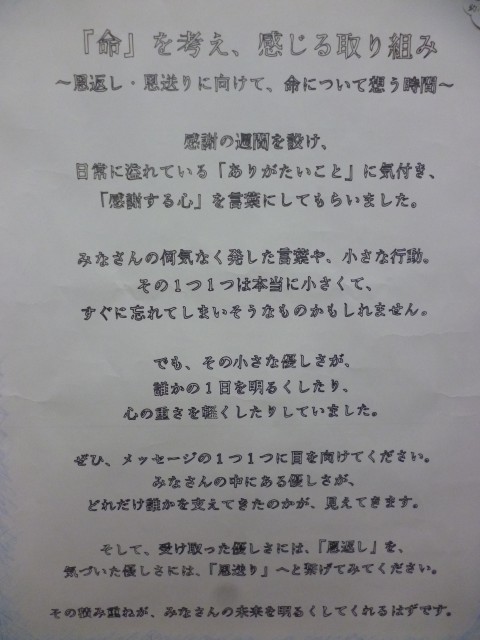 『命』を考え、感じる取り組み
～恩返し・恩送りに向けて、命について想う時間～
感謝の週間を設け、
日常に溢れている「ありがたいこと」に気付き、
「感謝する心」を言葉にしてもらいました。
みなさんの何気なく発した言葉や、小さな行動。
その１つ１つは本当に小さくて、
すぐに忘れてしまいそうなものかもしれません。
でも、その小さな優しさが、
誰かの１日を明るくしたり、
心の重さを軽くしたりしていました。
ぜひ、メッセージの１つ１つに目を向けてください。
みなさんの中にある優しさが、
どれだけ誰かを支えてきたのかが、見えてきます。
そして、受け取った優しさには、『恩返し』を、
気づいた優しさには、『恩送り』へと繋げてみてください。
その積み重ねが、みなさんの未来を明るくしてくれるはずです。